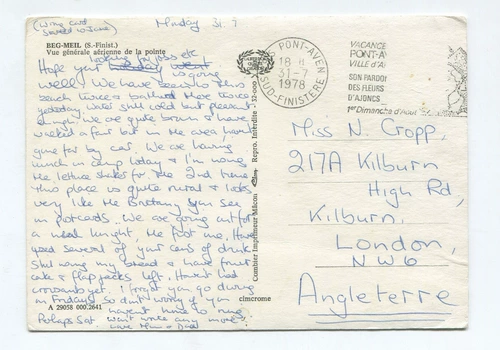 (Wrong card
saved w Jane)
Monday 31.7
BEG-MEIL (S.-Finist.)
Vue générale aérienne de la pointe
looking for joss etc
Hope your holiday is going
well. We have been on this
beach twice & bathed
yesterday. Water still cold but pleasant
enough. We are quite brown & have
walked a fair bit in the area having
gone far by car. We are having
lunch in camp today & I'm using
the lettuce shaker for the 2nd time.
This place is quite rural & looks
very like the Brittany you see
in postcards. We are going out for
a meal tonight, the first one. Have
used several of your cans of drink.
Still using my bread & have fruit
cake & flapjacks left. Haven't had
croissants yet. I forgot you go away
on Friday so don't worry if you
haven't time to ring.
Perhaps Sat
won't write any more
love Mum & Dad
A 29058 000.2641
cimcrome
Combier Imprimeur Mâcon
Repro. Interdite
PONT-AVEN
18 H
31-7
1978
SUD-FINISTERE
VACANCE
PONT-A
VILLE D'A
SON PARDON
DES FLEURS
D'AJONCS
1er Dimanche d'Août
Miss N. Cropp,
217A Kilburn
High Rd,
Kilburn,
London,
NW6
Angleterre